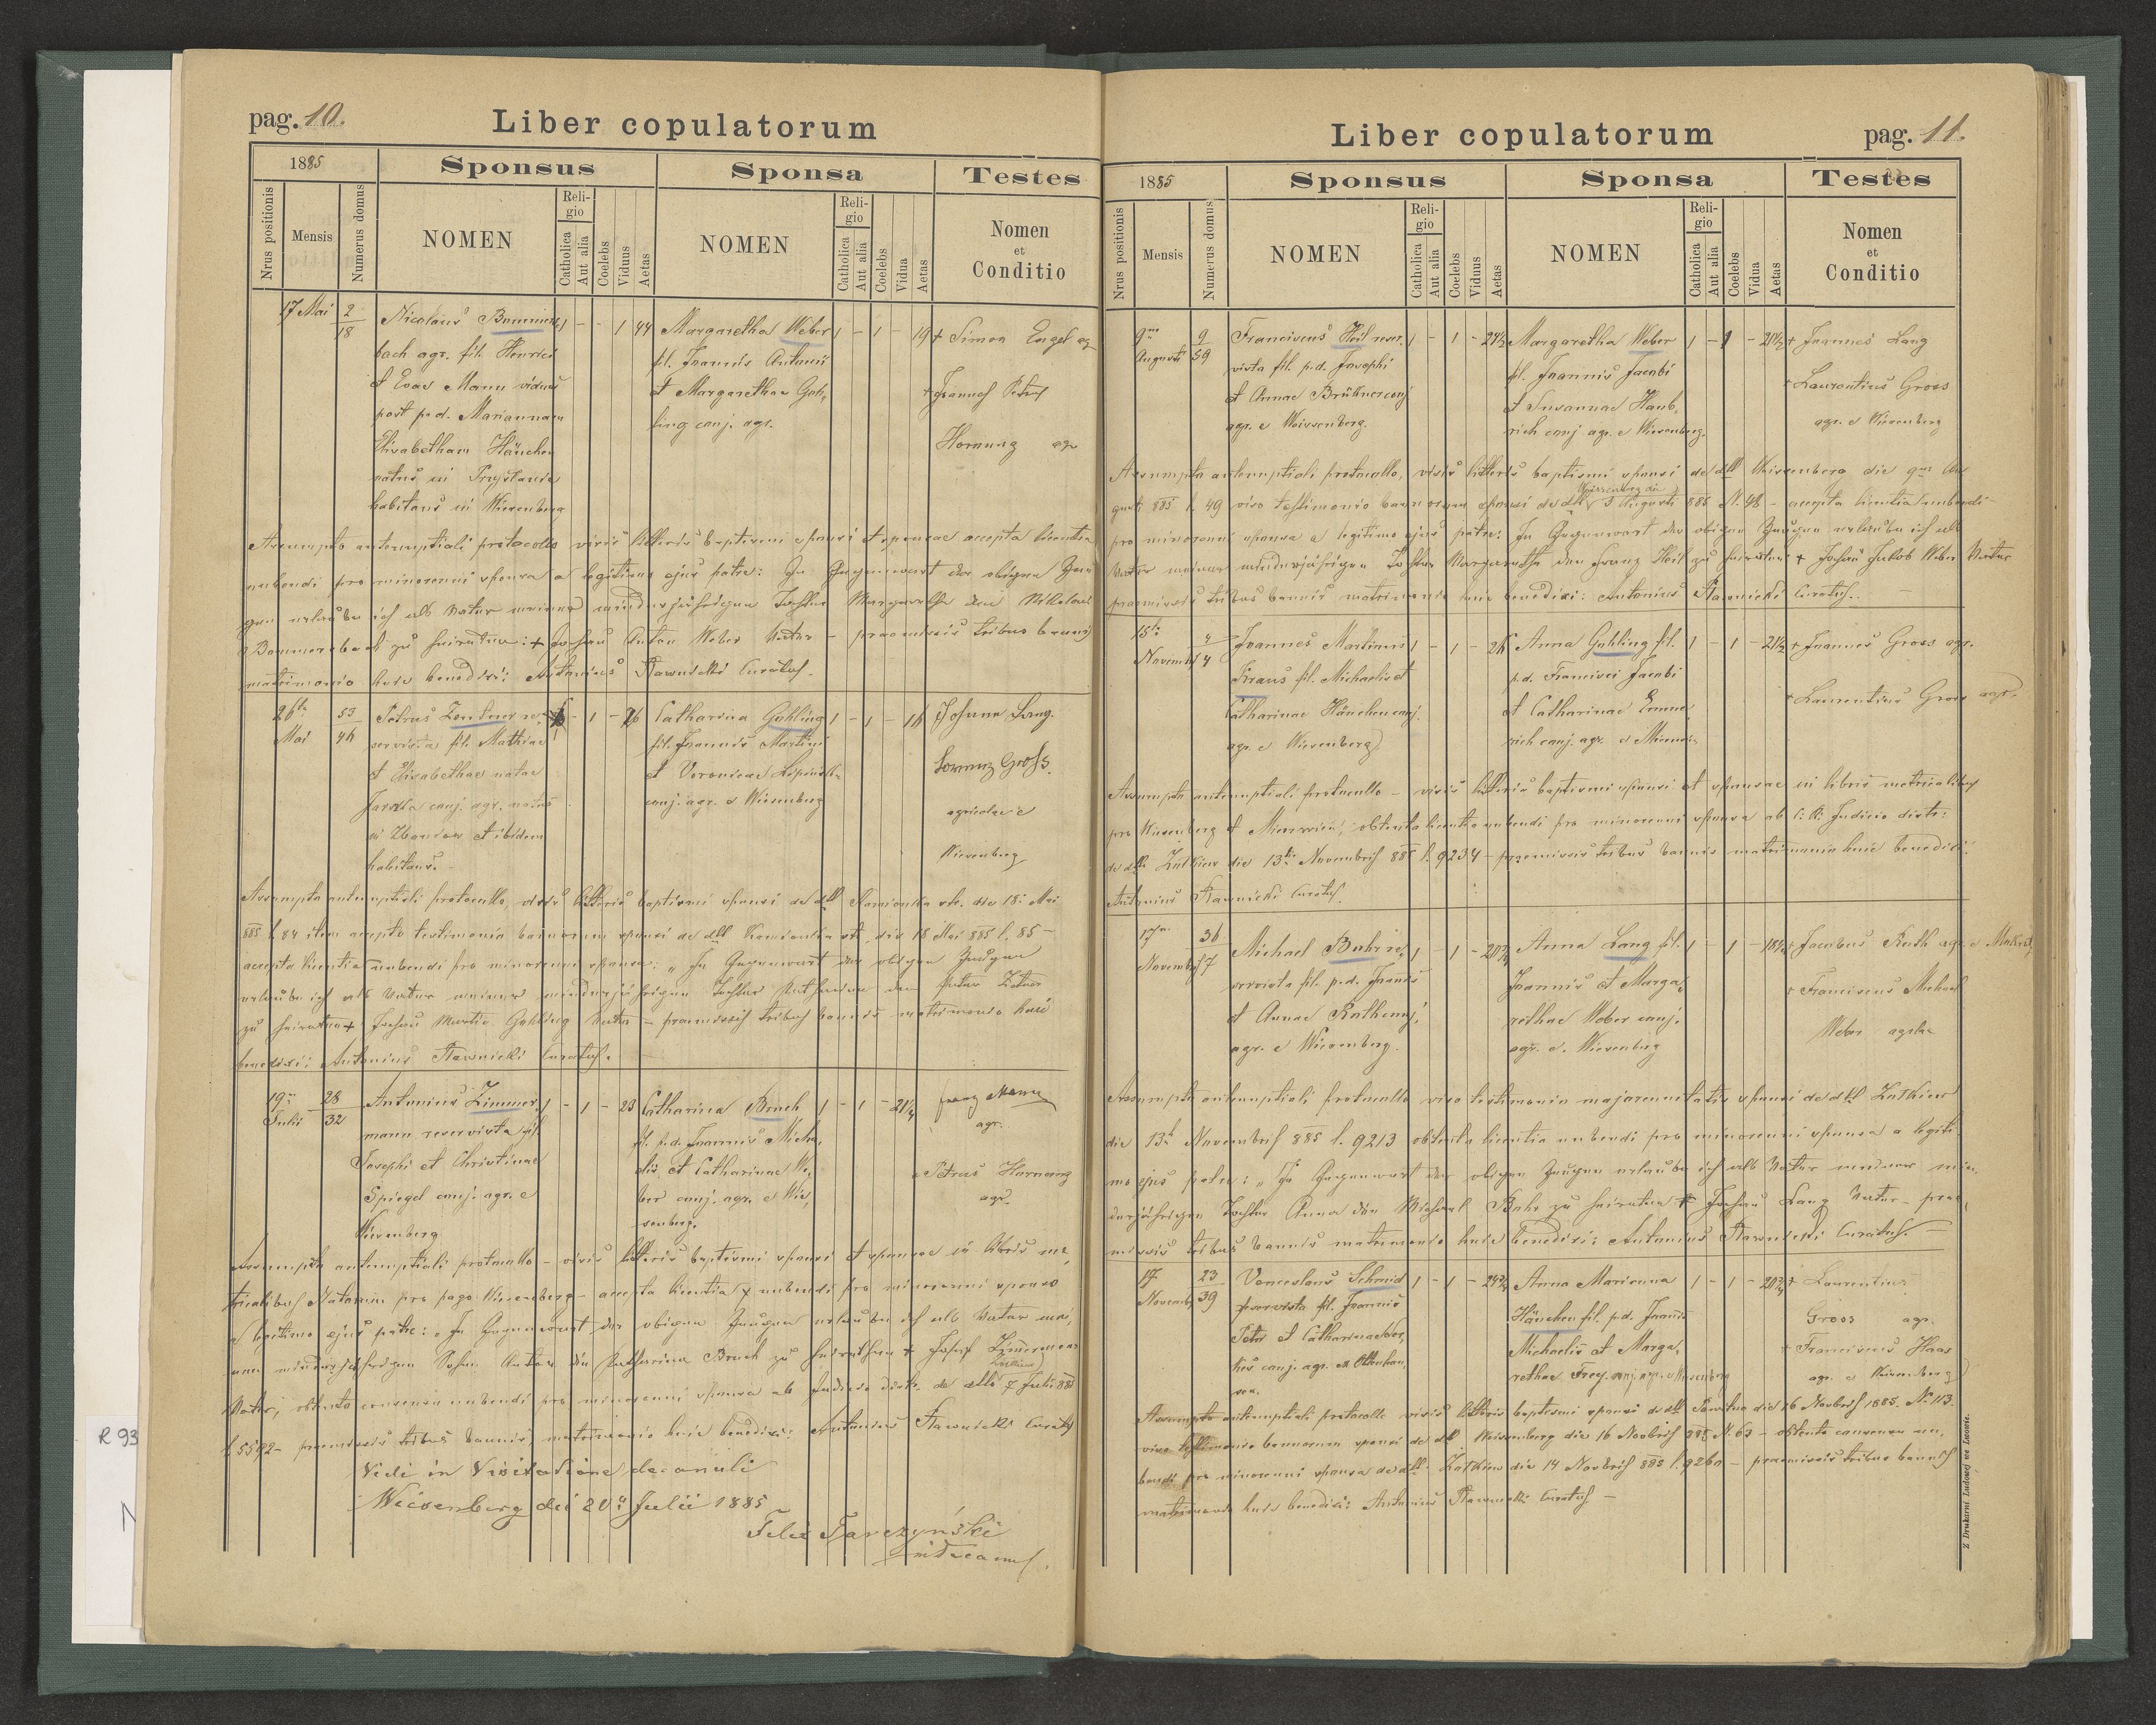 pag. 10.
Liber copulatorum
1885
Sponsus
Sponsa
Testes
Nrus positionis
Mensis
Numerus domus
NOMEN
Religio
Catholica
Aut alia
Coelebs
Viduus
Aetas
NOMEN
Religio
Catholica
Aut alia
Coelebs
Vidua
Aetas
Nomen
et
Conditio
17 Mai 2/18 Nicolaus 1 - - 1 44 Margaretha Weber 1 - 1 - 19 + Simon Engel ag
bach agr. fil. Henrici fil. Joannis Antonii
et Evae Mann viduus et Margarethae Guh- + Petrus
post p.d. Mariannam ling conj. agr.
Elisabetham Hänchen Hornung agr
natus in
habitans in Wiesenberg
Assumpto antenuptiali protocollo visis litteris baptismi sponsi et sponsae accepta licentia
nubendi pro minorenni sponsa a legitimo ejus patre: In Gegenwart der obigen Zeu
gen erlaube ich als Vater meiner minderjährigen Tochter Margaretha den Nikolaus
zu heiraten: + Johann Anton Weber Vater - praemissis tribus bannis
matrimonio huic benedixi: Antonius Curatus.
26ta Mai 53/46 Petrus Zentner re- 1 - 26 Catharina Guhling 1 - 1 - 16 Johann Lang.
servista fil. Mathiae fil. Joannis Martini
et Elisabethae natae et Veronicae Lorenz Gross.
conj. agr. natus conj. agr. e Wiesenberg
in et ibidem agricolae e
habitans. - Wiesenberg
Assumpto antenuptiali protocollo, visis litteris baptismi sponsi de dtt Kamionka str. die 18 Mai
885 l. 84 item accepto testimonio bannorum sponsi de dtt Kamionka str. die 18 Mai 885 l. 85 -
accepta licentia nubendi pro minorenni sponsa: "In Gegenwart der obigen Zeugen
erlaube ich als Vater meiner minderjährigen Tochter Katharina den Peter
zu heiraten + Johann Martin Guhling Vater - praemissis tribus bannis matrimonio huic
benedixi: Antonius Curatus.
19a Julii 28/32 Antonius Zimmer- 1 - 1 - 23 Catharina Bruch 1 - 1 - 21 1/4 Franz Mann
mann reservista fil. fil. p.d. Joannis Micha- agr.
Josephi et Christinae elis et Catharinae We-
Spiegel conj. agr. e ber conj. agr. e Wie- Petrus Hornung
Wiesenberg senberg. agr.
Assumpto antenuptiali protocollo - visis litteris baptismi sponsi et sponsae in libris me-
tricalibus Natorum pro pago Wiesenberg - accepta licentia nubendi pro minorenni sponso
a legitimo ejus patre: "In Gegenwart der obigen Zeugen erlaube ich als Vater mei-
nen minderjährigen Sohn Anton die Katharina Bruch zu heirathen + Josef Zimerman
Vater, obtento consensu nubendi pro minorenni sponsa ab Judicio distr. de dtto 7 Juli 885
l. 5592 - praemissis tribus bannis matrimonio huic benedixi: Antonius Curatus
Vidi in Visitatione decanali
Weisenberg die 20a Julii 1885
Felix Tarczyński
pag. 11.
Liber copulatorum
1885
Sponsus
Sponsa
Testes
Nrus positionis
Mensis
Numerus domus
NOMEN
Religio
Catholica
Aut alia
Coelebs
Viduus
Aetas
NOMEN
Religio
Catholica
Aut alia
Coelebs
Vidua
Aetas
Nomen
et
Conditio
9na Augusti 9/59 Franciscus Heil reser- 1 - 1 - 24 1/2 Margaretha Weber 1 - 1 - 20 1/2 + Joannes Lang
vista fil. p.d. Josephi fil. Joannis Jacobi
et Annae Brükner conj et Susannae Haub- + Laurentius Gross
agr. e Weissenberg. rich conj. agr. e Wiesenberg. agr. e Wiesenberg
Assumpto antenuptiali protocollo, visis litteris baptismi sponsi de dtt Weissenberg die 9na Au
gusti 885 l. 49 viso testimonio bannorum sponsi de dtt Weissenberg die 9 Augusti 885 N. 48 - accepta licentia nubendi
pro minorenni sponsa a legitimo ejus patre: In Gegenwart der obigen Zeugen erlaube ich als
Vater meiner minderjährigen Tochter Margaretha den Franz Heil zu heiraten + Johann Jakob Weber Vater
praemissis tribus bannis matrimonio huic benedixi: Antonius Curatus. -
15ta Novembr 4/4 Joannes Martinus 1 - 1 - 26 Anna Guhling fil. 1 - 1 - 21 1/2 + Joannes Gross agr.
Kraus fil. Michaelis et p.d. Francisci Jacobi
Catharinae Hänchen conj. et Catharinae Emme- + Laurentius Gross agr.
agr. e Wiesenberg rich conj. agr. e
Assumpto antenuptiali protocollo - visis litteris baptismi sponsi et sponsae in libris metricalibus
pro Wiesenberg et obtenta licentia nubendi pro minorenni sponsa ab C. R. Judicio distr.
de dtt Zolkiew die 13tia Novembris 885 l. 9234 - praemissis tribus bannis matrimonio huic benedixi
Antonius Curatus.
17a Novembris 36/7 Michael re- 1 - 1 - Anna Lang fil. 1 - 1 - + Jacobus Ruth agr. e
servista fil. p.d. Joannis Joannis et Marga-
et Annae Ruth conj. rethae Weber conj. + Franciscus Michael
agr. e Wiesenberg. agr. e. Wiesenberg Weber agolae
Assumpto antenuptiali protocollo viso testimonio majorennitatis sponsi de dtt Zolkiew
die 13t Novembris 885 l. 9213 obtenta licentia nubendi pro minorenni sponsa a legiti-
mo ejus patre: "In Gegenwart der obigen Zeugen erlaube ich als Vater meiner min-
derjährigen Tochter Anna den Michael zu heiraten + Johann Lang Vater - prae-
missis tribus bannis matrimonio huic benedixi: Antonius Curatus.
17 Novembr 23/39 Venceslaus Schmid 1 - 1 - Anna Marianna 1 - 1 - + Laurentius
reservista fil. Joannis Hänchen fil. p.d. Joannis Gross agr.
Petri et Catharinae Michaelis et Marga- + Franciscus Haas
conj. agr. ex rethae Frey. conj. agr. e Wiesenberg agr. e Wiesenberg
Assumpto antenuptiali protocollo visis litteris baptismi sponsi de dtt die 16 Novbris 1885. No 113.
viso testimonio bannorum sponsi de dtt Weissenberg die 16 Novbris 885 N. 63 - obtento consensu nu-
bendi pro minorenni sponsa de dtt. Zolkiew die 14 Novbris 885 l. 9260 - praemissis tribus bannis
matrimonio huic benedixi: Antonius Curatus -
Z Drukarni Ludowej we Lwowie.
R 93